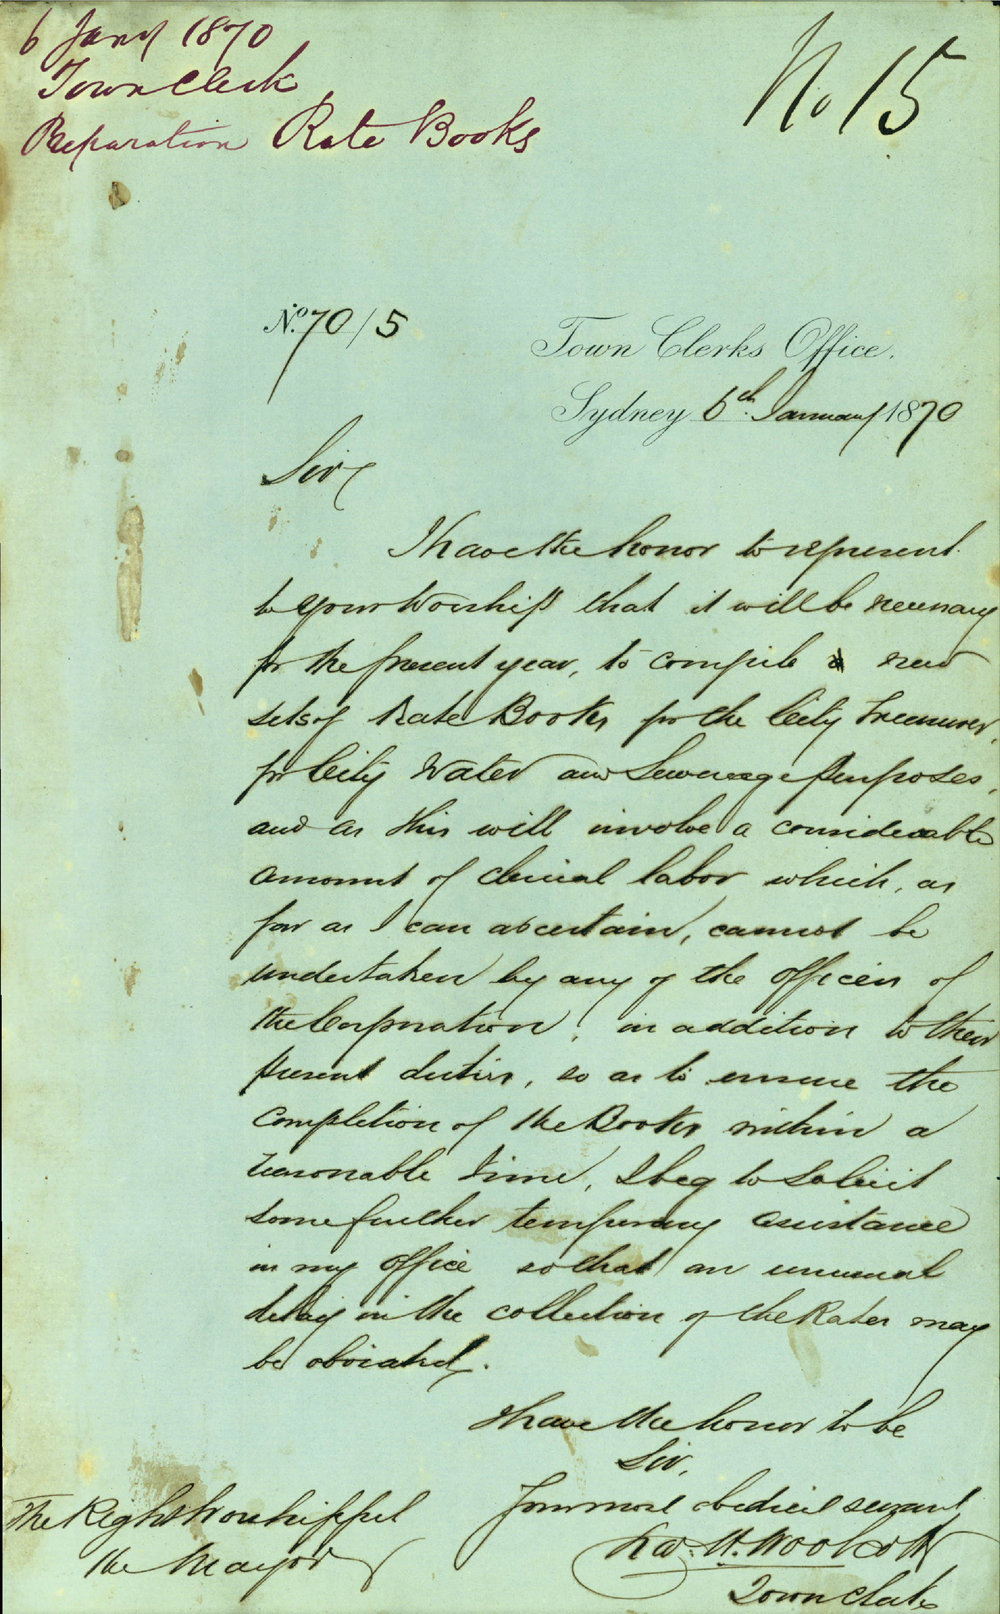 6 Jany 1870
Town Clerk
Preparation Rate Books
No 15
No. 70/5
Town Clerks Office.
Sydney 6th January 1870
Sir,
I have the honor to represent
to Your Worship that it will be necessary
for the present year, to compile new
sets of Rate Books for the City Treasurer,
for City Water and Sewerage purposes,
and as this will involve a considerable
amount of clerical labor which, as
far as I can ascertain, cannot be
undertaken by any of the officers of
the Corporation, in addition to their
present duties, so as to ensure the
completion of the Books within a
reasonable time, I beg to solicit
some further temporary assistance
in my office so that an unusual
delay in the collection of the Rates may
be obviated.
I have the honor to be
Sir,
Your most obedient servant
The Right Worshipful
the Mayor
Woolcott
Town Clerk